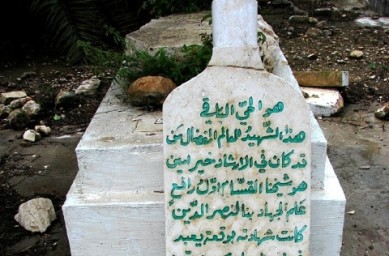 هو الحي الباقي
هذا الشهيد العالم المفضال من
قد كان في الارشاد خير امين
هو شيخنا القسّام اوّل رافع
علم الجهاد بنا لنصر الدّين
كانت شهادته بموقعة يعبد